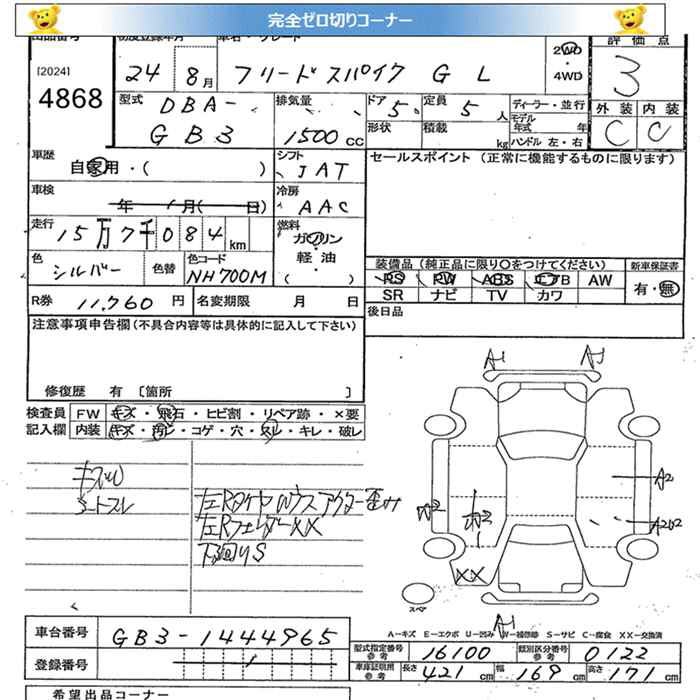 完全ゼロ切りコーナー
出品番号 初度登録年月 車名・グレード 評価点
[2024]
4868
24 8月 フリードスパイク G L
2WD
4WD
3
型式 DBA-
GB3
排気量
1500 CC
ドア 5
形状
定員 5 人
積載 kg
ディーラー・並行
モデル
年式 年
ハンドル 左・右
外装 内装
C C
車歴
自家用・( )
シフト
JAT
セールスポイント (正常に機能するものに限ります)
車検
年 月( 日)
冷房
AAC
走行
15万7千084 km
燃料
ガソリン
軽・油
( )
色
シルバー
色替
色コード
NH700M
装備品 (純正品に限り○をつけてください) 新車保証書
PS PW ABS エアB AW
SR ナビ TV カワ
有・無
R券 11,760 円 名変期限 月 日
後日品
注意事項申告欄(不具合内容等は具体的に記入して下さい)
修復歴 有 〔箇所 〕
検査員 FW キズ・飛石・ヒビ割・リペア跡・×要
記入欄 内装 キズ・汚レ・コゲ・穴・スレ・キレ・破レ
シートスレ
左Rタイヤハウスアウター歪み
左RフェンダーXX
下回りS
A1 A1
A2
A2 A2
A2U2
XX
A1
スペア
A-キズ E-エクボ U-凹み W-補修跡 S-サビ C-腐食 XX-交換済
車台番号 GB3-1444965
登録番号
型式指定番号
参考
16100
類別区分番号
参考
0122
車庫証明用
参考
長さ 421 cm 幅 169 cm 高さ 171 cm
希望出品コーナー